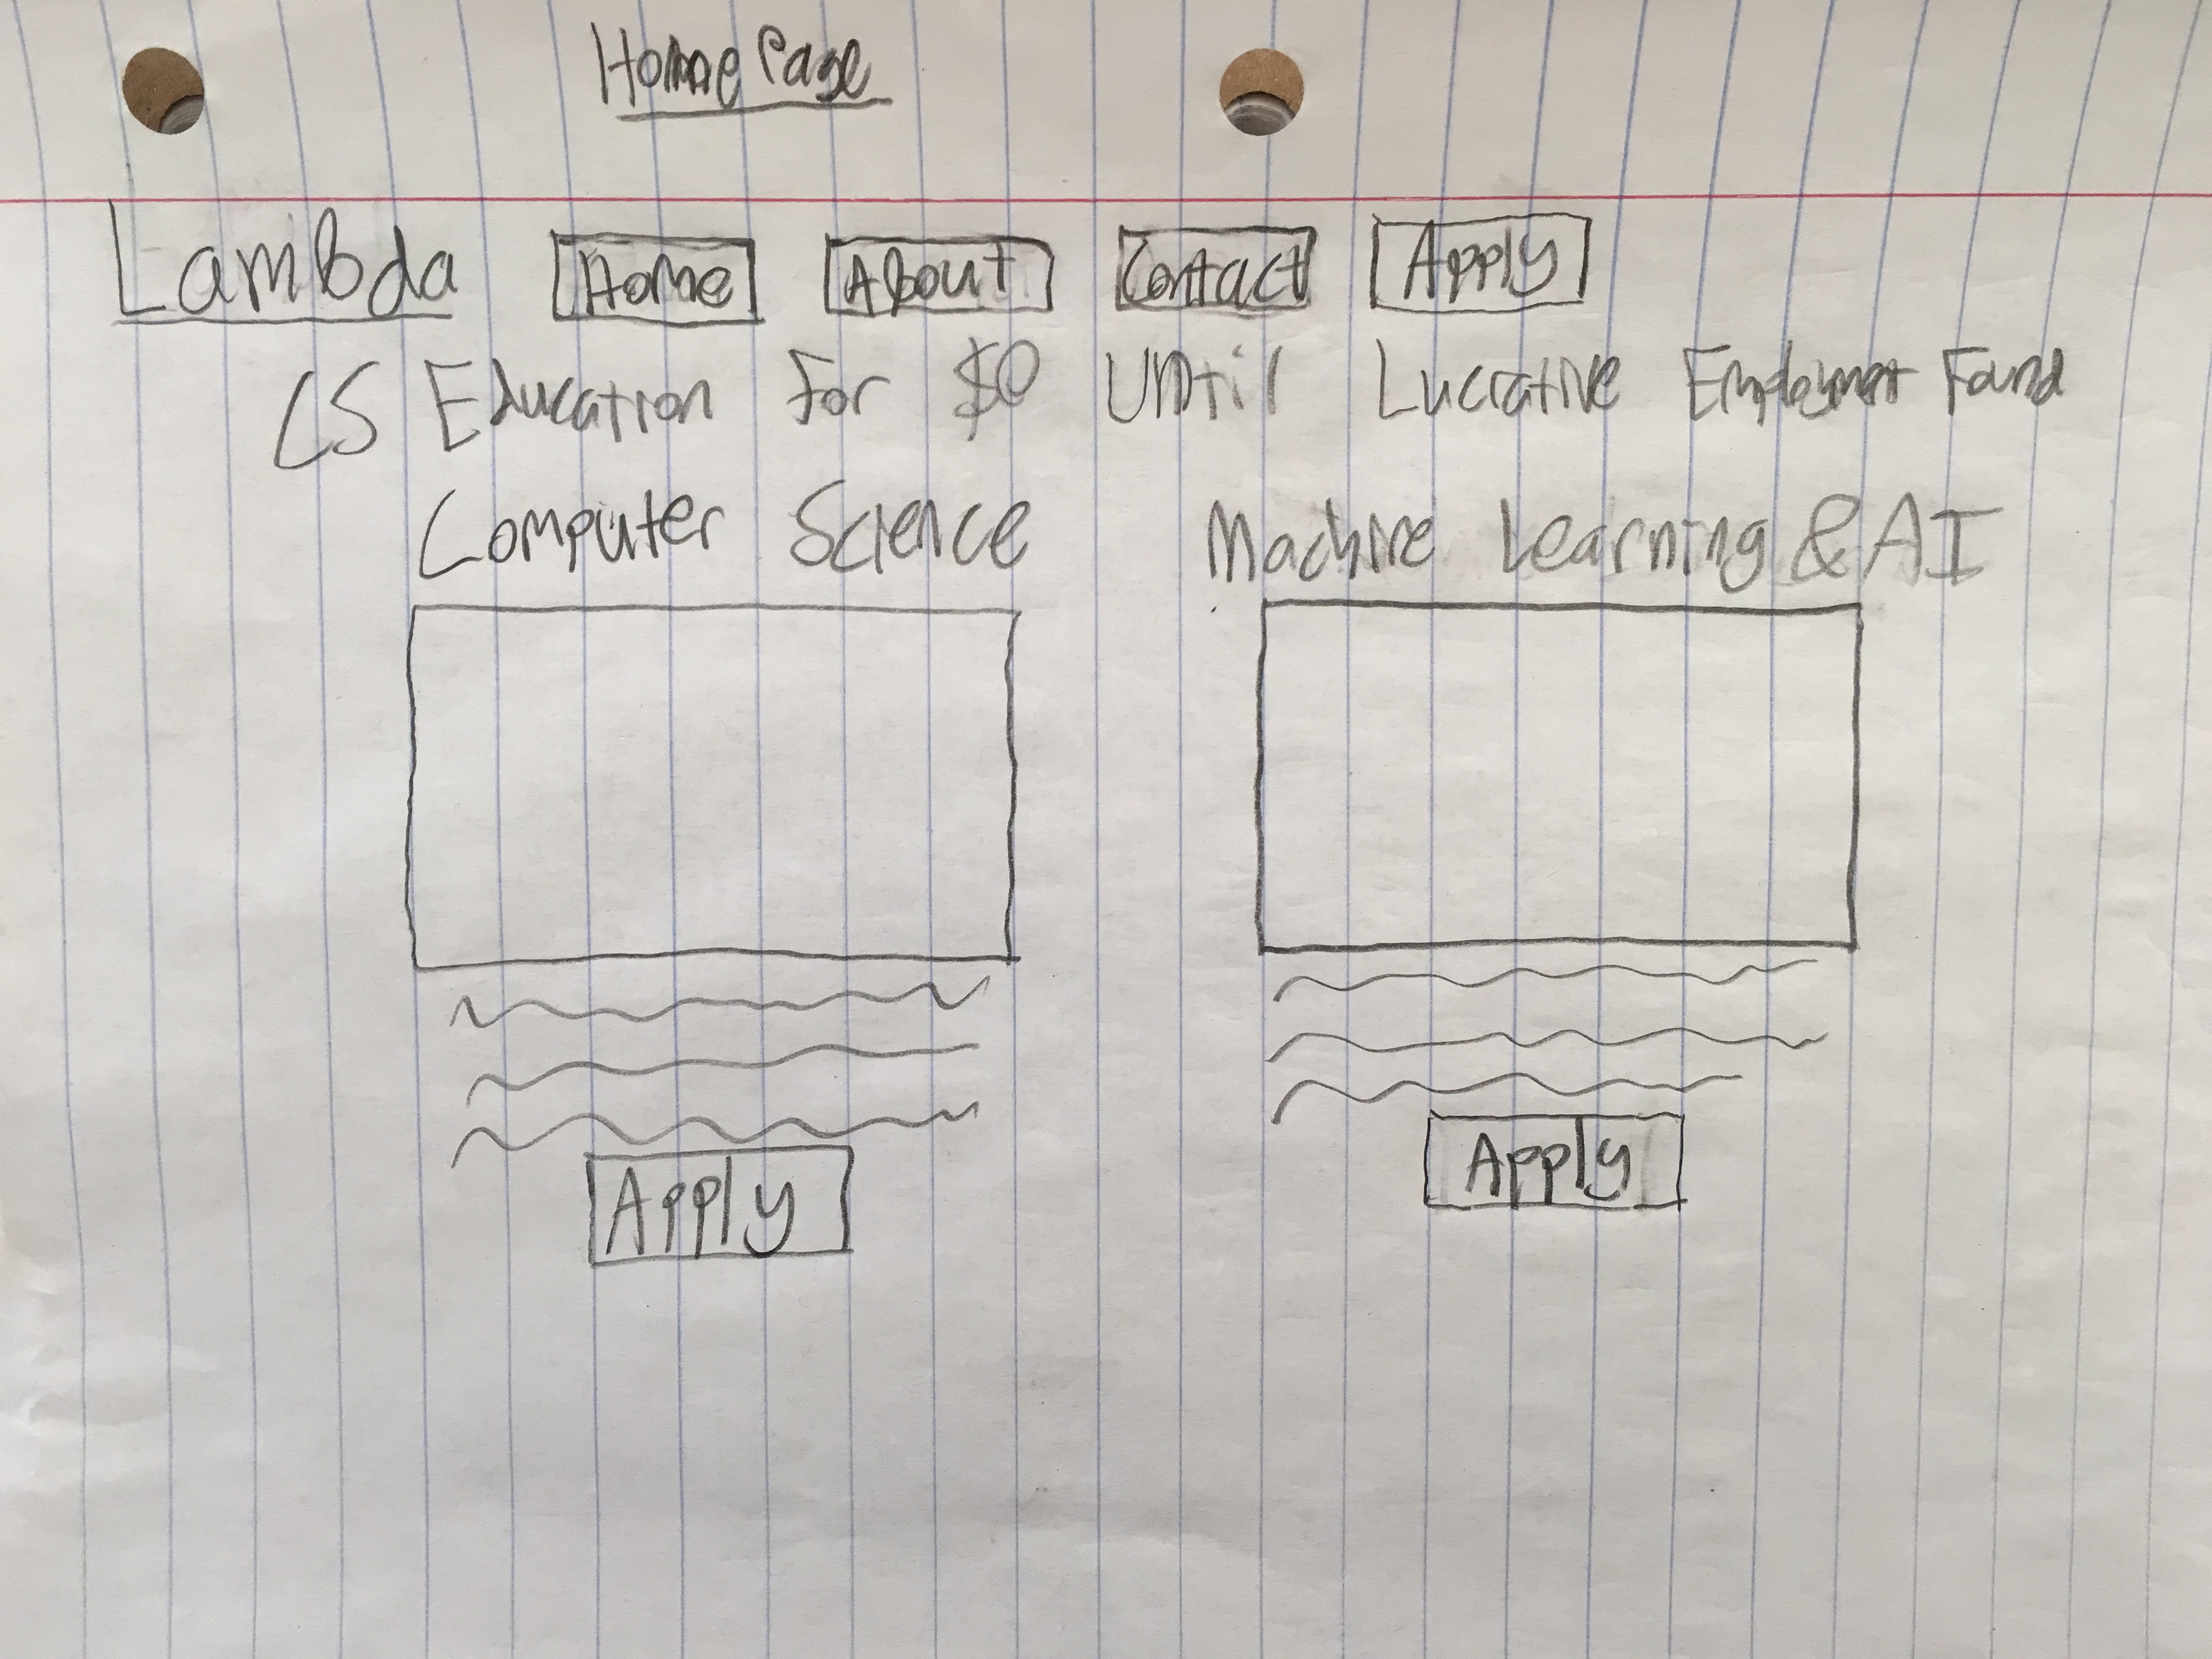 Home Page
Lambda Home About Contact Apply
CS Education For $0 Until Lucrative Employment Found
Computer Science Machine Learning & AI
Apply Apply